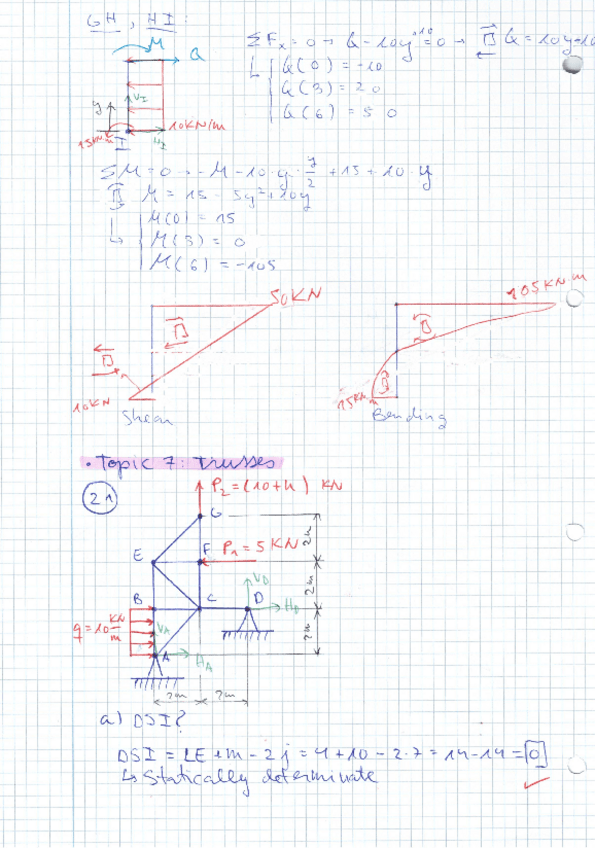 GH, HI:
M
Q
y
V_I
10KN/m
15KN·m
I
H_I
ΣFx = 0 → Q - 10y +10 = 0 → Q = 10y-10
Q(0) = -10
Q(3) = 20
Q(6) = 50
ΣM = 0 → -M - 10·y·y/2 + 15 + 10·y
M = 15 - 5y² + 10y
M(0) = 15
M(3) = 0
M(6) = -105
50KN
105KN·m
10KN
Shear
15KN·m
Bending
• Topic 7: Trusses
21
P2 = (10+u) KN
G
2m
E
F
P1 = 5KN
2m
B
C
V_D
D
H_D
q = 10 KN/m
V_A
2m
A
H_A
2m
2m
a) DSI?
DSI = LE + m - 2j = 4 + 10 - 2·7 = 14 - 14 = 0
↳ Statically determinate